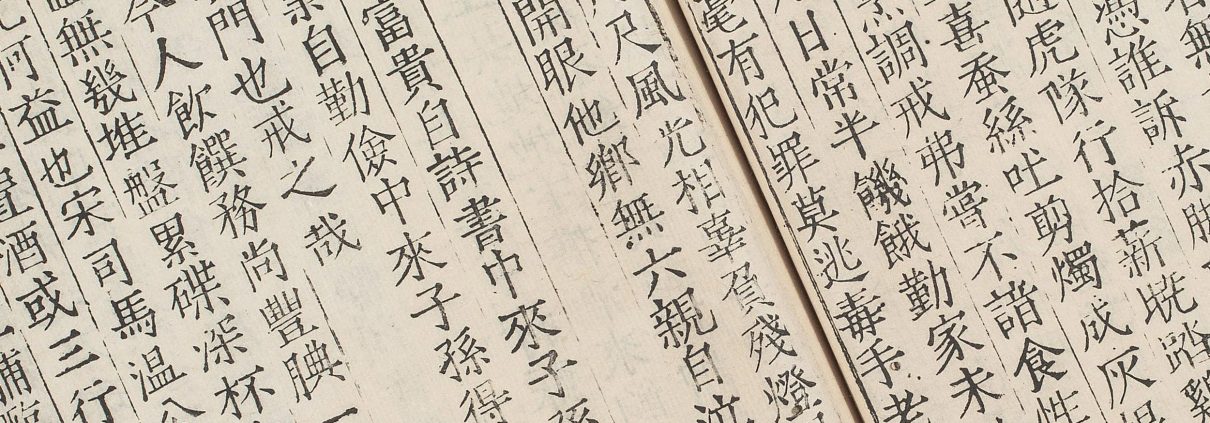 無
憑誰訴赤
虎隊行拾薪旣踏雞
喜蚕絲吐剪燭成灰
調戒弗嘗不諳食性
日常半饑餓勤家未
毫有犯罪莫逃毒手老
尺風光相辜負殘燈
開眼他鄉無六親自泣
富貴自詩書中來子孫
自勤儉中來子孫得
門也戒之哉
今人飲饌務尚豐腆一
無幾堆盤累碟深杯
何益也宋司馬溫公
置酒或三行